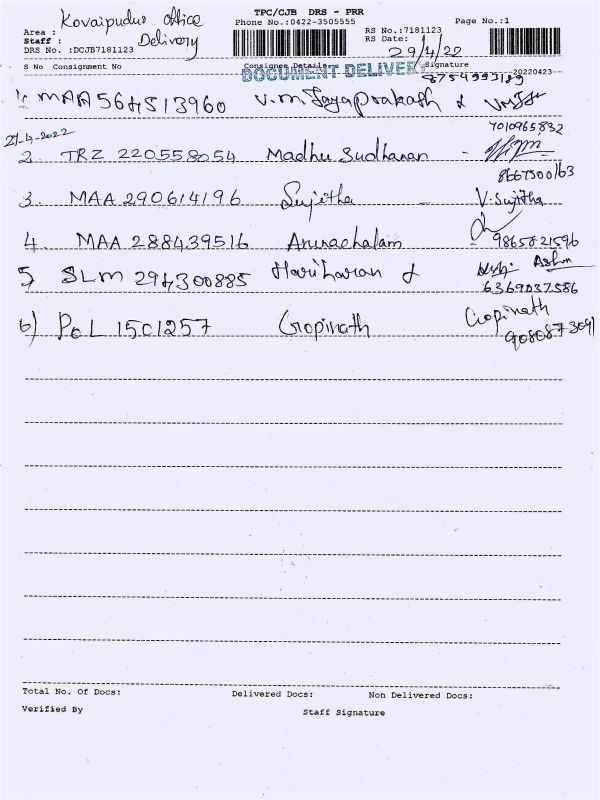 TPC/CJB DRS - PRR
Kovaipudur office
Phone No.:0422-3505555
Page No.:1
Area :
RS No.:7181123
Staff : Delivery
RS Date: 29/4/22
DRS No. :DCJB7181123
S No Consignment No Consignee Details Signature
DOCUMENT DELIVERY
20220423
1. MAA564513960 V.M.Jayaprakash &
7010965832
2. TRZ 220558054 Madhu Sudhanan -
8667500163
3. MAA 290614196 Sujitha - V.Sujitha
4. MAA 288439516 Arunachalam 9865821596
5 SLM 294300885 Hariharan &
6369037586
6) POL 1501257 Gopinath Gopinath
Total No. Of Docs: Delivered Docs: Non Delivered Docs:
Verified By Staff Signature